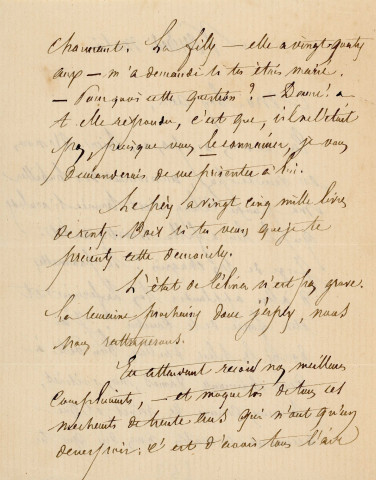 charmant. La fille — elle a vingt quatre
ans — m'a demandé si tu étais marié.
— Pourquoi cette question ? — Dame ! a
t elle répondu, c'est que, s'il ne l'était
pas, puisque vous le connaissez, je vous
demanderais de me présenter à lui.
Le père a vingt cinq mille livres
de rente. Vois si tu veux que je te
présente cette demoiselle.
L'état de n'est pas grave.
La semaine prochaine donc j'espère, nous
nous rattraperons.
En attendant reçois nos meilleurs
compliments, — et moque toi de tous ces
méchants de trente ans qui n'ont qu'un
c'est d'avoir tous l'air